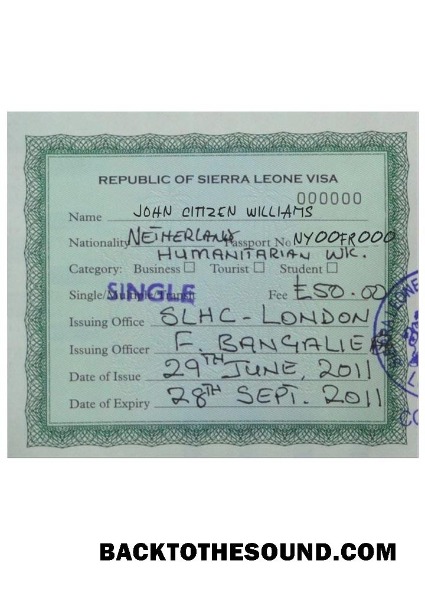 REPUBLIC OF SIERRA LEONE VISA
000000
Name JOHN CITIZEN WILLIAMS
Nationality NETHERLAND Passport No NY00FR000
HUMANITARIAN WK.
Category: Business Tourist Student
Single/Multiple/Transit SINGLE Fee £50.00
Issuing Office SLHC - LONDON
Issuing Officer F. BANGALIE
Date of Issue 29TH JUNE, 2011
Date of Expiry 28TH SEPT. 2011
BACKTOTHESOUND.COM